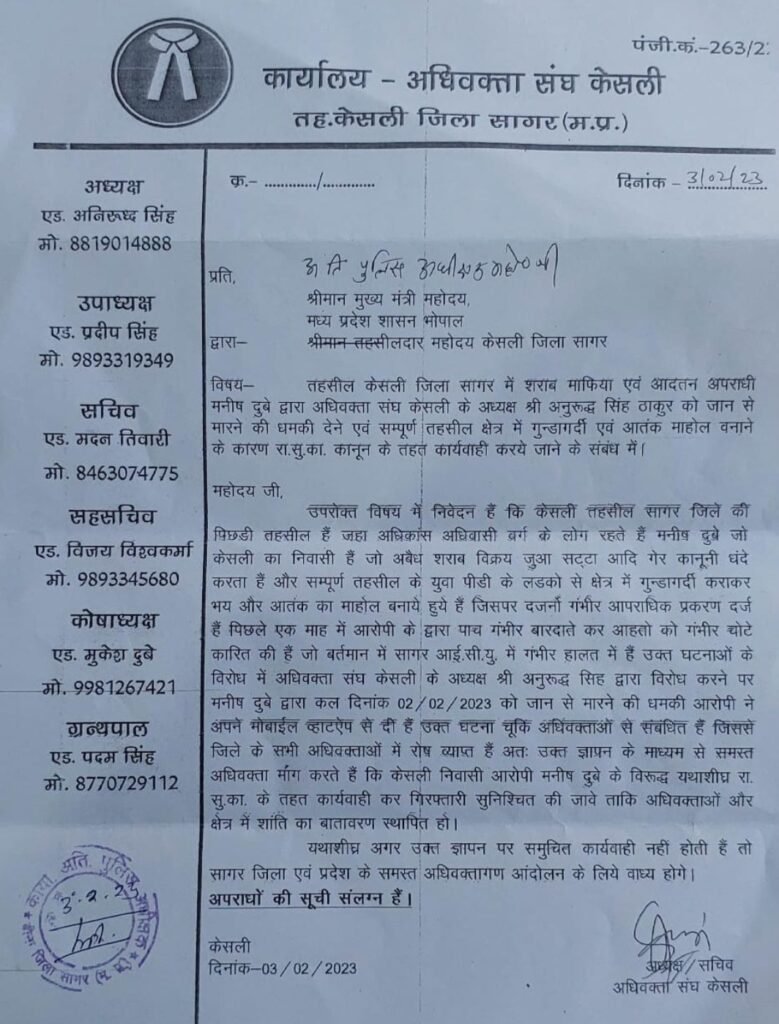 पंजी.कं.-263/2
कार्यालय - अधिवक्ता संघ केसली
तह.केसली जिला सागर (म.प्र.)
अध्यक्ष
एड. अनिरुध्द सिंह
मो. 8819014888
उपाध्यक्ष
एड. प्रदीप सिंह
मो. 9893319349
सचिव
एड. मदन तिवारी
मो. 8463074775
सहसचिव
एड. विजय विश्वकर्मा
मो. 9893345680
कोषाध्यक्ष
एड. मुकेश दुबे
मो. 9981267421
ग्रन्थपाल
एड. पदम सिंह
मो. 8770729112
क्र.- ............/............
दिनांक - 3/02/23
अति पुलिस अधीक्षक महो० जी
प्रति,
श्रीमान मुख्य मंत्री महोदय,
मध्य प्रदेश शासन भोपाल
द्वारा– श्रीमान तहसीलदार महोदय केसली जिला सागर
विषय– तहसील केसली जिला सागर में शराब माफिया एवं आदतन अपराधी
मनीष दुबे द्वारा अधिवक्ता संघ केसली के अध्यक्ष श्री अनुरूद्ध सिंह ठाकुर को जान से
मारने की धमकी देने एवं सम्पूर्ण तहसील क्षेत्र में गुन्डागर्दी एवं आतंक माहोल वनाने
के कारण रा.सु.का. कानून के तहत कार्यवाही करये जाने के संबंध में।
महोदय जी,
उपरोक्त विषय में निवेदन हैं कि केसली तहसील सागर जिले की
पिछडी तहसील हैं जहा अधिकांस अधिवासी वर्ग के लोग रहते हैं मनीष दुबे जो
केसली का निवासी हैं जो अबैध शराब विक्रय जुआ सट्टा आदि गेर कानूनी धंदे
करता हैं और सम्पूर्ण तहसील के युवा पीडी के लडको से क्षेत्र में गुन्डागर्दी कराकर
भय और आतंक का माहोल बनाये हुये हैं जिसपर दर्जनो गंभीर आपराधिक प्रकरण दर्ज
हैं पिछले एक माह में आरोपी के द्वारा पाच गंभीर बारदाते कर आहतो को गंभीर चोटे
कारित की हैं जो बर्तमान में सागर आई.सी.यु. में गंभीर हालत में हैं उक्त घटनाओं के
विरोध में अधिवक्ता संघ केसली के अध्यक्ष श्री अनुरूद्ध सिह द्वारा विरोध करने पर
मनीष दुबे द्वारा कल दिनांक 02/02/2023 को जान से मारने की धमकी आरोपी ने
अपने मोबाईल व्हाटऐप से दी हैं उक्त घटना चूकि अधिवक्ताओं से संबंधित हैं जिससे
जिले के सभी अधिवक्ताओं में रोष व्याप्त हैं अतः उक्त ज्ञापन के माध्यम से समस्त
अधिवक्ता माँग करते हैं कि केसली निवासी आरोपी मनीष दुबे के विरूद्ध यथाशीघ्र रा.
सु.का. के तहत कार्यवाही कर गिरफ्तारी सुनिश्चित की जावे ताकि अधिवक्ताओं और
क्षेत्र में शांति का बातावरण स्थापित हो।
यथाशीघ्र अगर उक्त ज्ञापन पर समुचित कार्यवाही नहीं होती हैं तो
सागर जिला एवं प्रदेश के समस्त अधिवक्तागण आंदोलन के लिये वाध्य होगे।
अपराधों की सूची संलग्न हैं।
केसली
दिनांक-03/02/2023
अध्यक्ष/सचिव
अधिवक्ता संघ केसली
अति. पुलिस अधीक्षक
जिला सागर (म. प्र.)
3.2.2